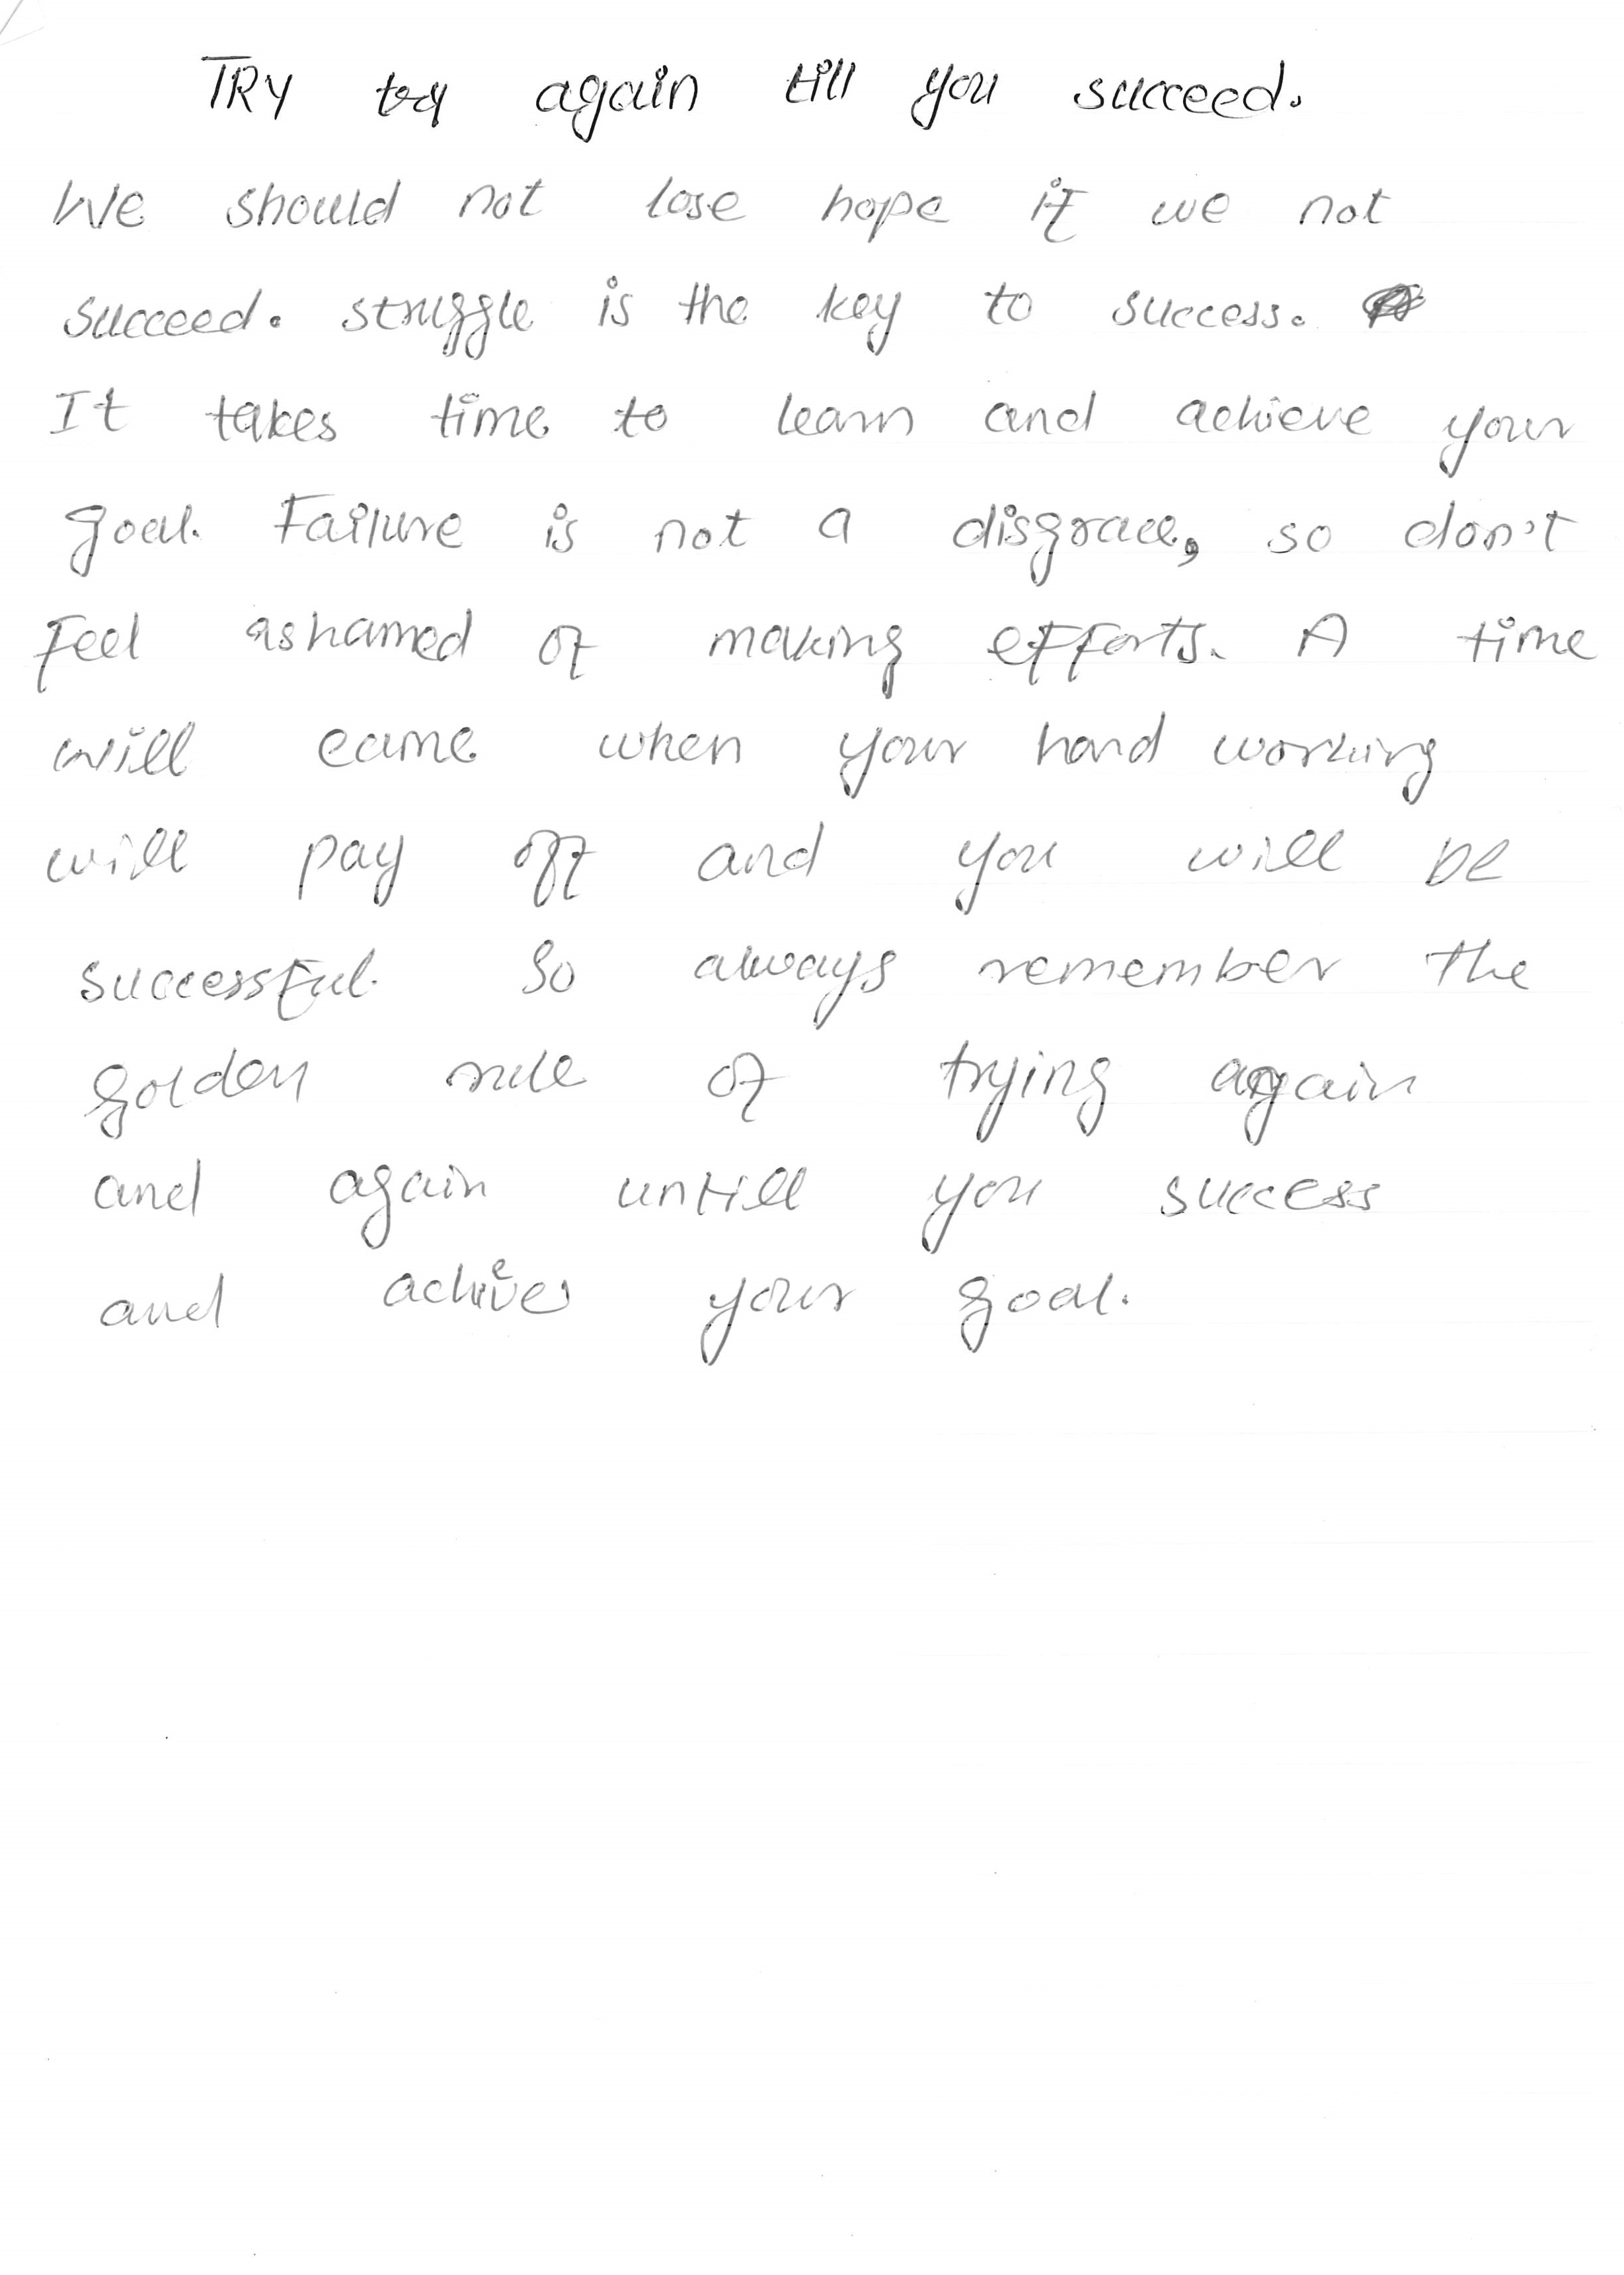 TRY try again till you succeed.
We should not lose hope if we not
succeed. struggle is the key to success.
It takes time to learn and achieve your
goal. Failure is not a disgrace, so don't
Feel ashamed of making efforts. A time
will came when your hard working
will pay off and you will be
successful. So always remember the
golden rule of trying again
and again untill you success
and achive your goal.